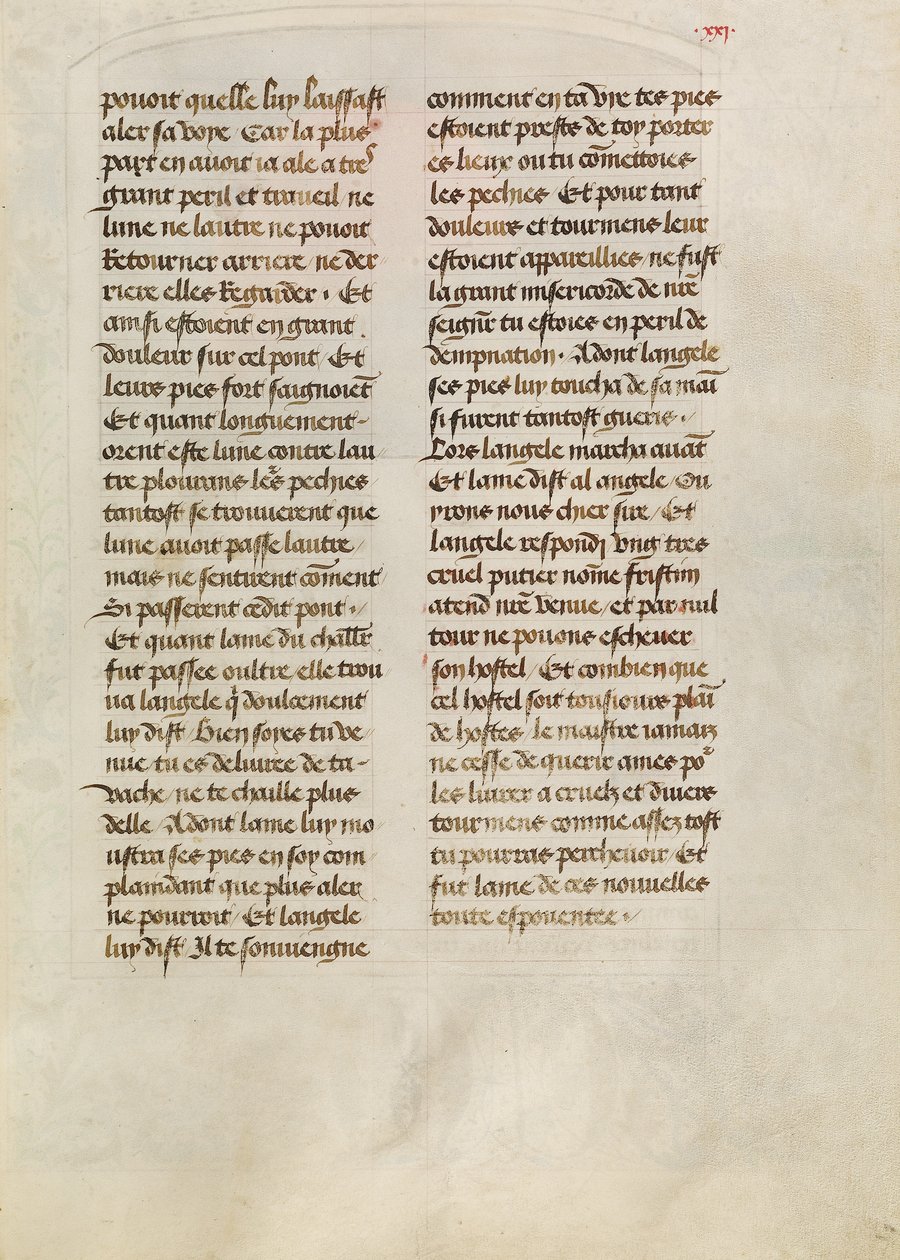 ·xxj·
pouoit quelle luy laissast
aler sa voye / Car la plus
part en auoit ia ale a tres
grant peril et traueil / ne
lune ne lautre ne pouoit
Retourner arriere / ne der-
riere elles Regarder · Et
ainsi estoient en grant
douleur sur cel pont / Et
leurs pies fort saignoiēt
Et quant longuement-
orent este lune contre lau-
tre plourans le's pechies
tantost se trouuerent que
lune auoit passe lautre /
mais ne sentirent cōment
Si passerent cedit pont ·/
Et quant lame du challr̄
fut passee oultre / elle trou
ua langele q̄ doulcement
luy dist / Bien soyes tu ve-
nue / tu es deliuree de ta-
vache / ne te chaille plus
delle / Adont lame luy mo-
ustra ses pies en soy com-
plaindant que plus aler
ne pourroit / Et langele
luy dist / Il te souuiengne
comment en ta vye tes pies
estoient prests de toy porter
es lieux ou tu cōmettoies
les pechies / Et pour tant
douleurs et tourmens leur
estoient appareillies / ne fust
la grant misericorde de nr̄e
seignr̄ tu estoies en peril de
dempnation · Adont langele
ses pies luy toucha de sa maī
si furent tantost gueris ·/
Lors langele marcha auāt
Et lame dist al angele / Ou
yrons nous chier sire / Et
langele respondj vng tres
cruel putier nōme fristin
atend nr̄e venue / et par nul
tour ne pouons escheuer
son hostel / Et combien que
cel hostel soit tousiours plaī
de hostes / le maistre iamaiz
ne cesse de querir ames po'
les liurer a cruelz et diuers
tourmens comme assez tost
tu pourras percheuoir / Et
fut lame de ces nouuelles
toute espouentee ·/